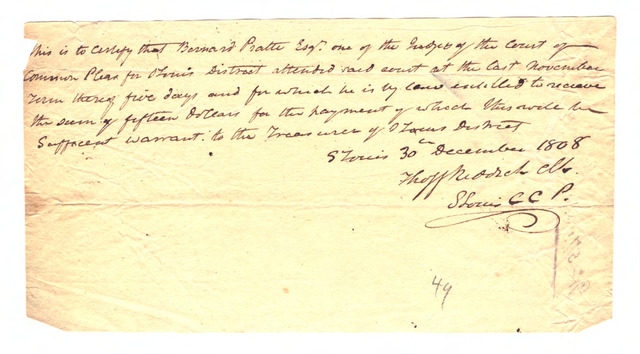 This is to Certify that Bernard Pratte Esqr. one of the Judges of the Court of
Common Pleas for St Louis District attended said court at the last November
Term thereof five days and for which he is by law entitled to receive
the sum of fifteen Dollars for the payment of which this will be
Sufficent warrant to the Treasurer of St Louis District
St Louis 30th December 1808
Thos F Riddick Clk.
St Louis C C P.
49